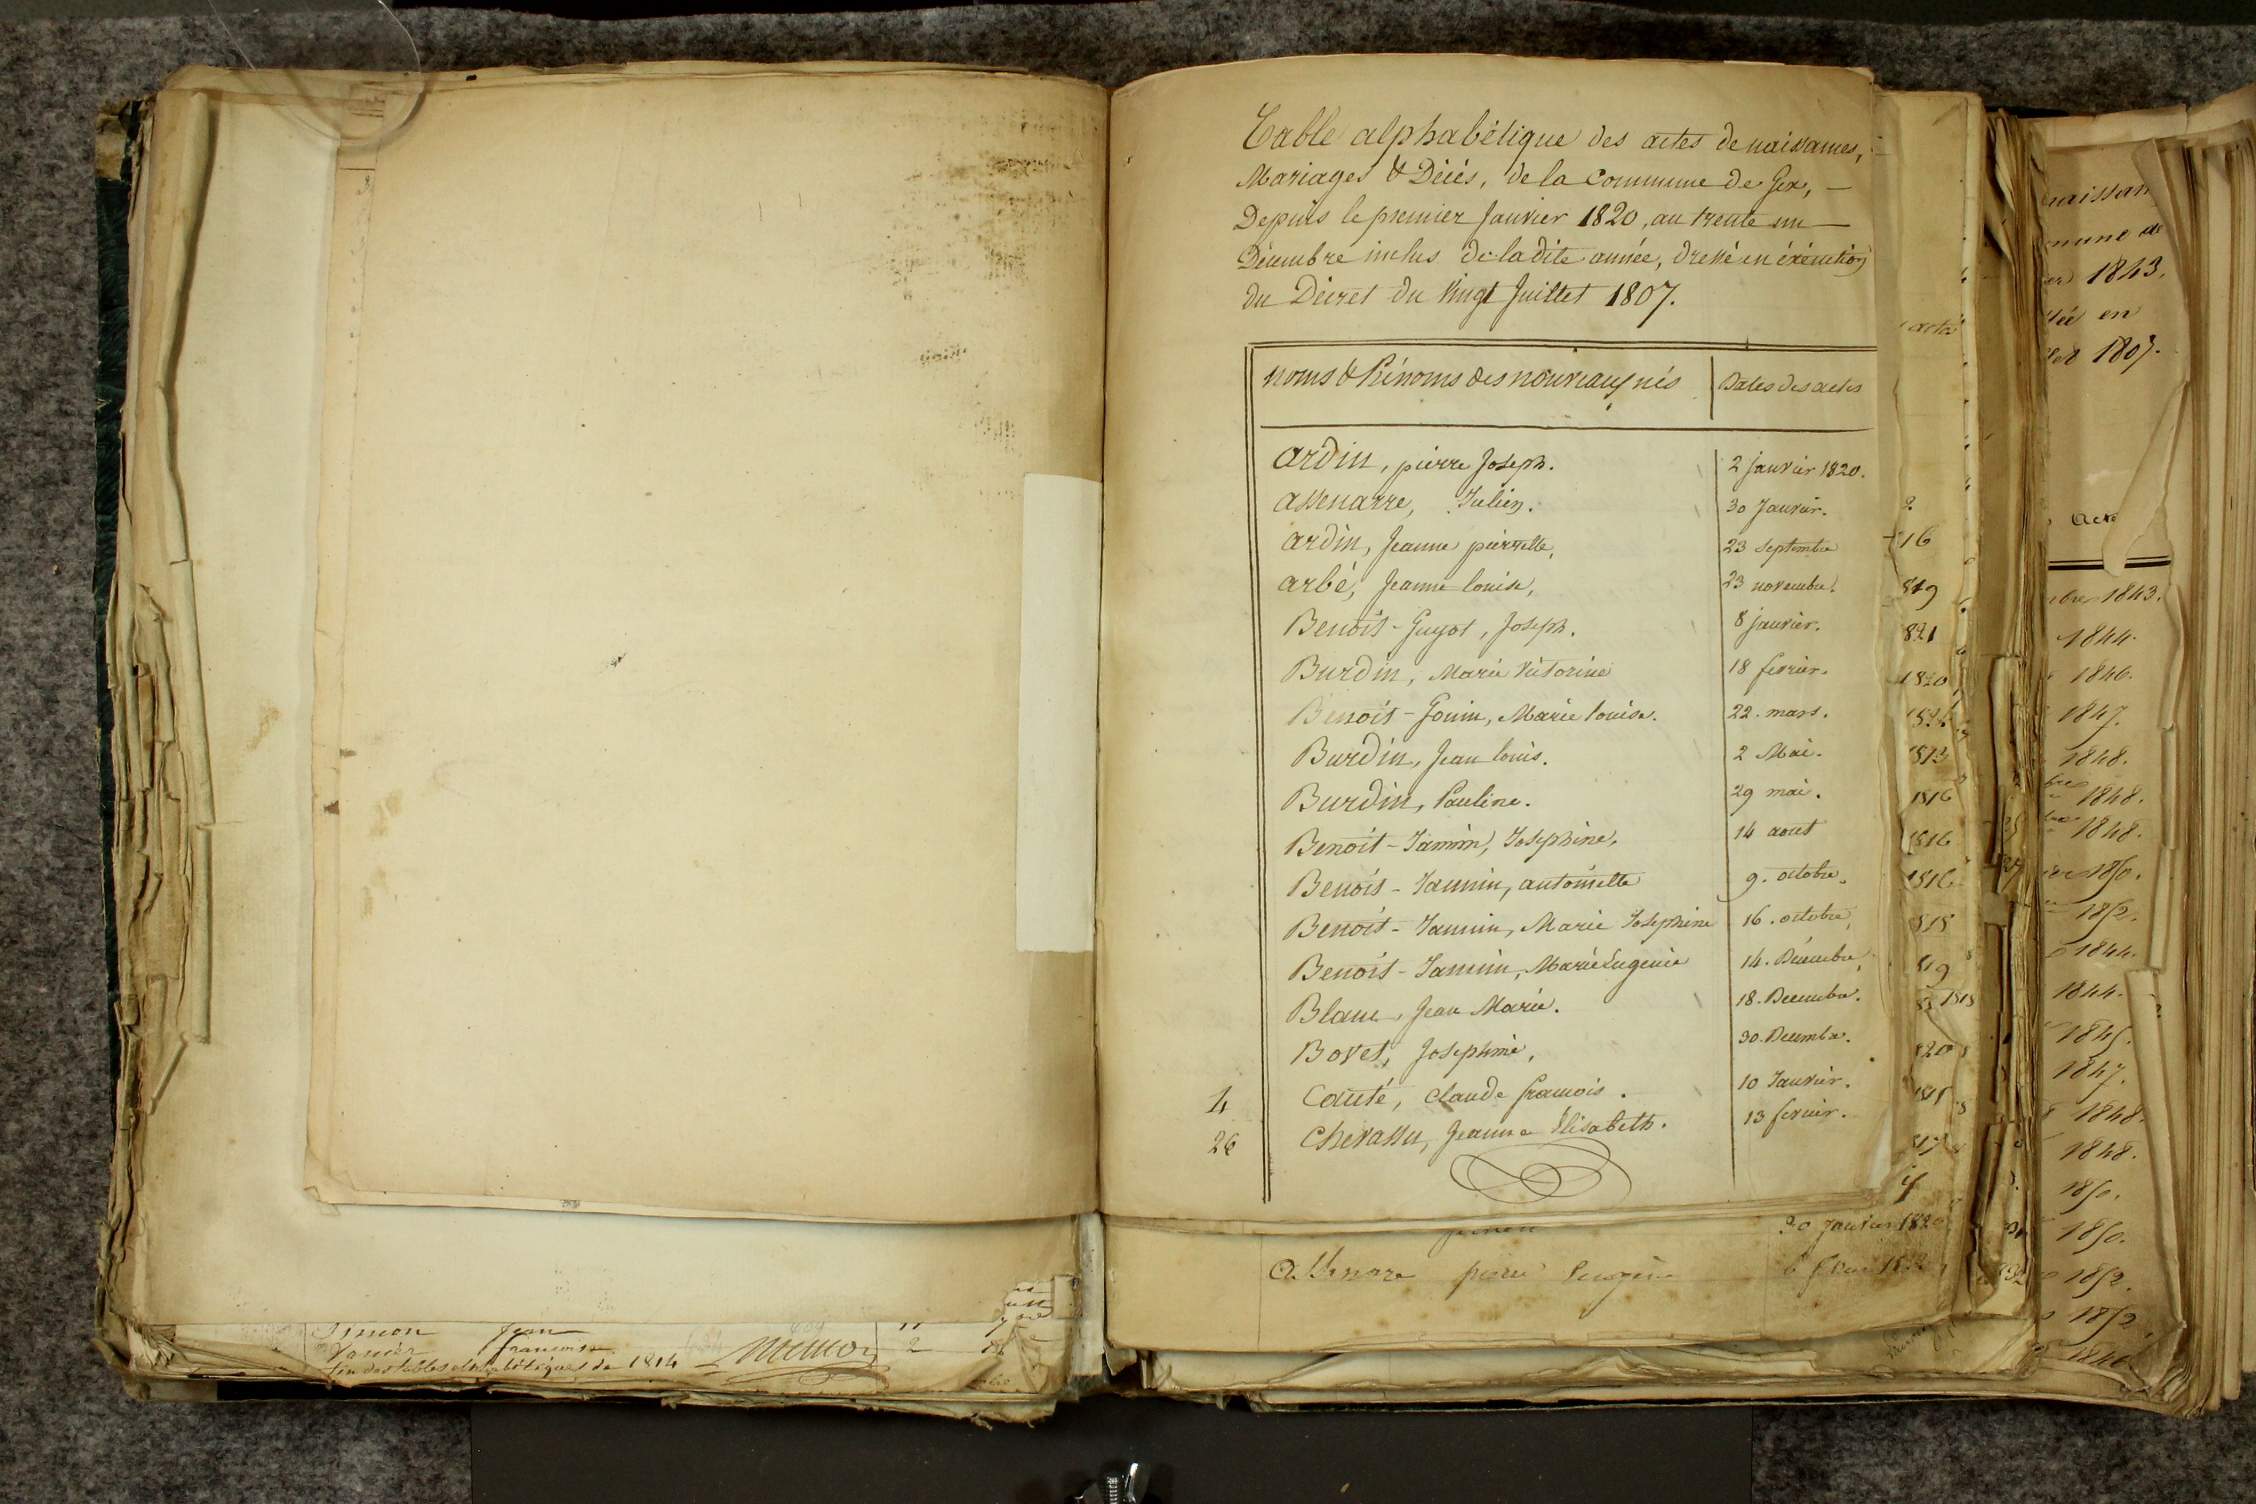 Table alphabétique des actes de naissances,
Mariages & Décés, de la Commune de Gex,
Depuis le premier Janvier 1820, au trente un
Décembre inclus de ladite année, dressé en éxécution
du Décret du Vingt Juillet 1807.
noms & Prénoms des nouveaux nés Dates des actes
Ardin, pierre Joseph. 2 janvier 1820.
Assenarre, Julien. 30 Janvier.
Ardin, Jeanne pierrette, 23 septembre
Arbé, Jeanne louise, 23 novembre.
Benoit-Guyot, Joseph. 8 janvier.
Burdin, Marie Victorine 18 fevrier.
Benoit-Gonin, Marie louise. 22. mars.
Burdin, Jean louis. 2 Mai.
Burdin, Pauline. 29 mai.
Benoit-Jannin, Josephine, 14 aout
Benoit-Jannin, antoinette 9. octobre.
Benoit-Jannin, Marie Josephine 16. octobre,
Benoit-Jannin, Marie Eugenie 14. Décembre,
Blanc, Jean Marie. 18. Decembre.
Bovet, Josephine, 30. Decembre.
4 Cauté, Claude francois. 10 Janvier.
26 Chevassu, Jeanne Elisabeth. 13 fevrier.
30 Janvier 1820
Assenare pierre
Simon Jean
Vanier francoise 2
fin des tables alphabétiques de 1814
acte
2
16
819
821
1820
1813
1816
1816
1816
818
819
820
naissan
mune de
1843.
en
1807.
Acte
1843.
1844.
1846.
1847.
1848.
1848.
1848.
1850.
1852.
1844.
1844.
1845.
1847.
1848.
1848.
1850.
1850.
1852.
1852
1846